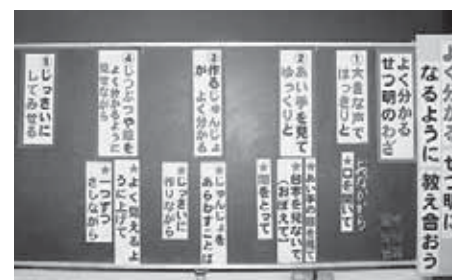 よく分かる せつ明に
なるように 教え合おう
よく分かる
せつ明のわざ
①大きな声で
はっきりと
★口を開いて
②あい手を見て
ゆっくりと
★あい手の目を見て
★台本を見ないで
(おぼえて)
★間をとって
③作るじゅんじょ
が よく分かる
★じゅんじょを
あらわすことば
★じっさいに
作りながら
④じつぶつや絵を
よく分かるように
見せながら
★よく見えるよ
うに上げて
★一つずつ
さしながら
⑤じっさいに
してみせる